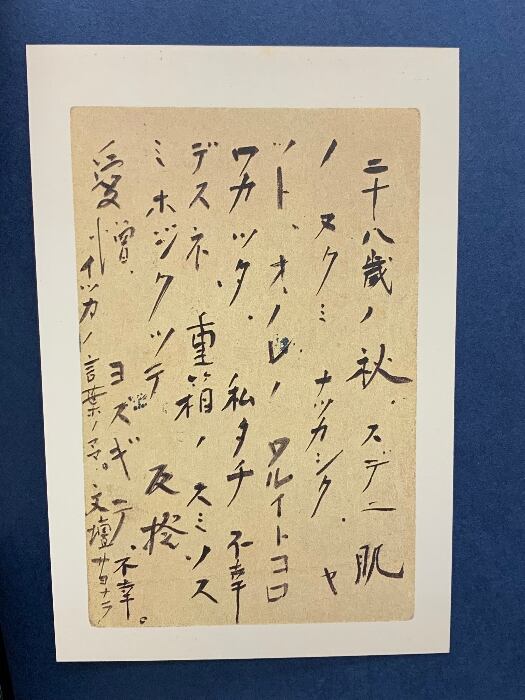 二十八歳ノ秋、スデニ肌
ノヌクミナツカシク、ヤ
ット、オノレノワルイトコロ
ワカッタ。私タチ不幸
デスネ 重箱ノスミソス
ミホジクッテ 反撥
愛憎、ヨスギテ、不幸。
イツカノ言葉ノママ。文壇サヨナラ